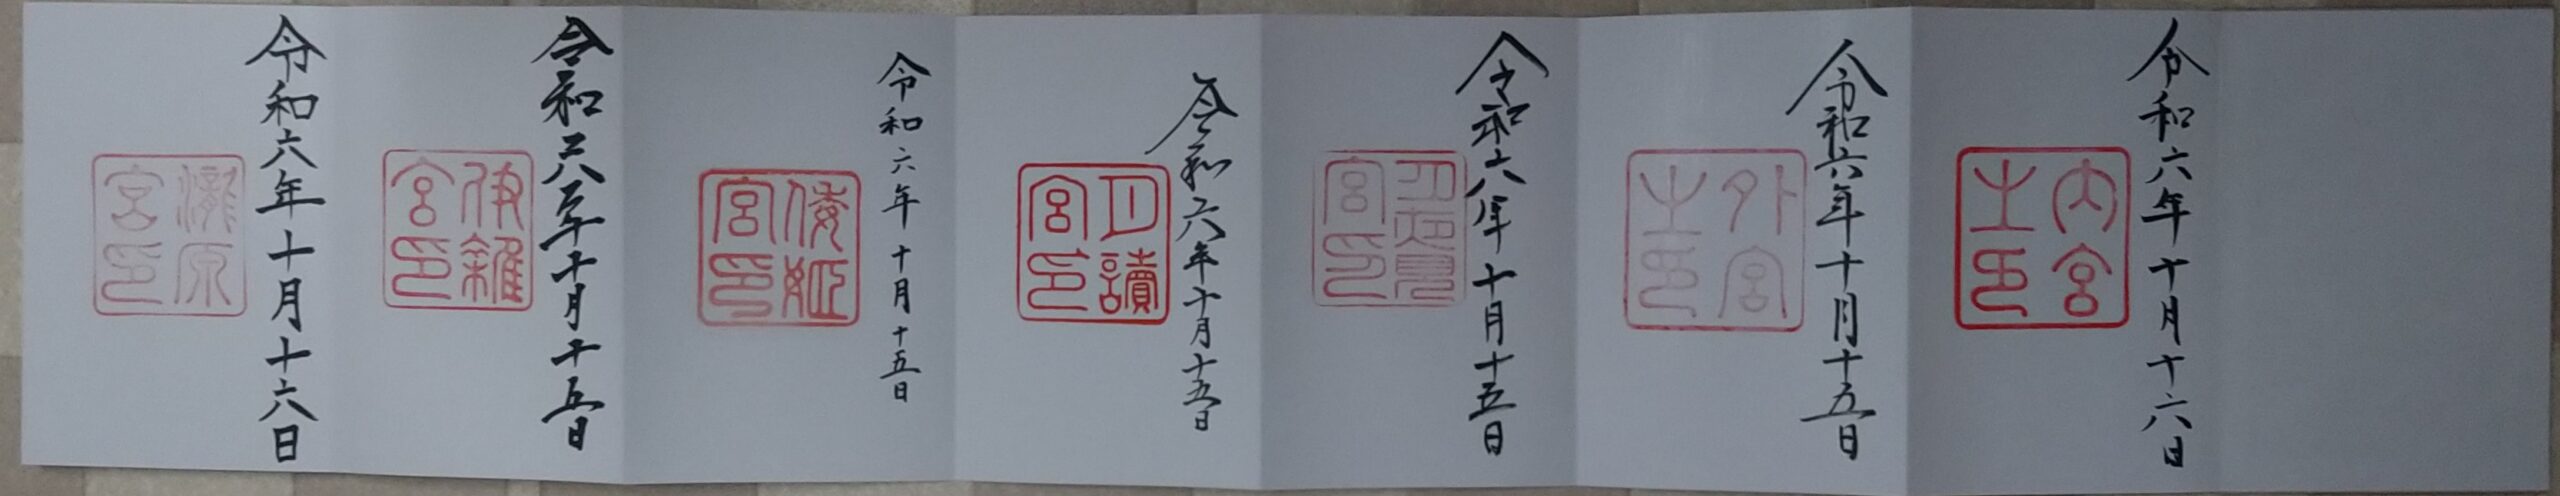 令和六年十月十六日
内宮
之印
令和六年十月十五日
外宮
之印
令和六年十月十五日
月夜見
宮印
令和六年十月十五日
月讀
宮印
令和六年十月十五日
倭姫
宮印
令和六年十月十五日
伊雜
宮印
令和六年十月十六日
瀧原
宮印